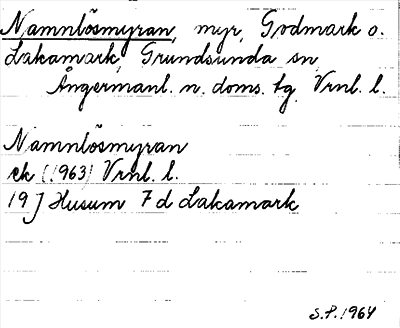 Namnlösmyran, myr, Godmark o.
Lakamark, Grundsunda sn,
Ångermanl. n. doms. tg, Vrnl. l.
Namnlösmyran
ek (1963) Vrnl. l.
19 J Husum 7 d Lakamark
S.P. 1964